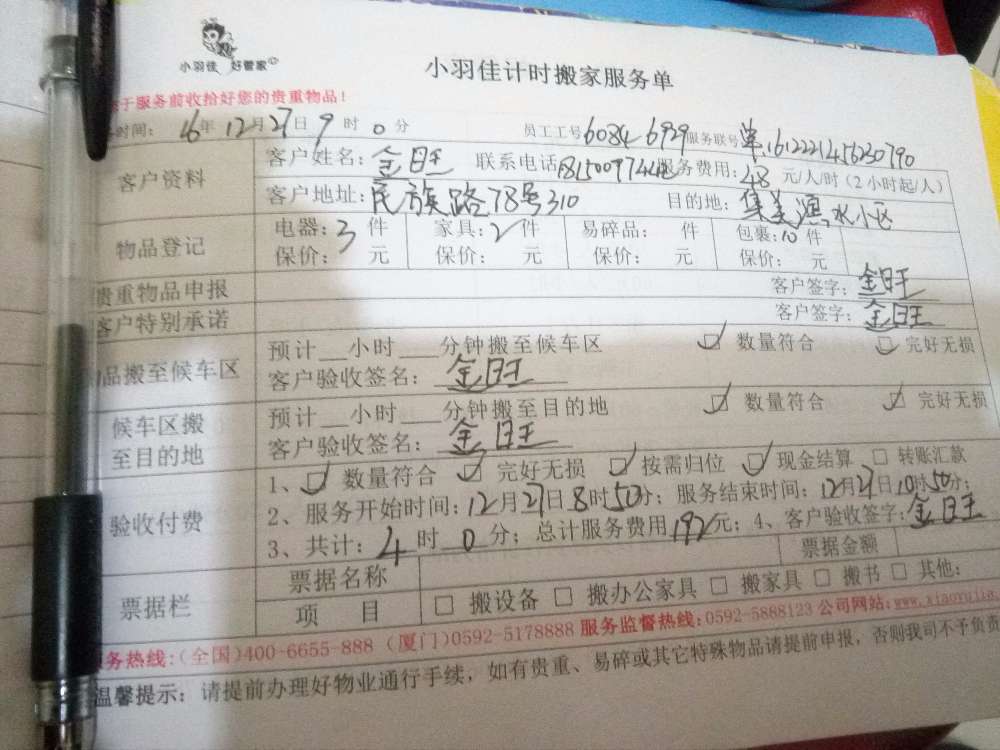 小羽佳 好管家
小羽佳计时搬家服务单
于服务前收拾好您的贵重物品!
时间: 16年12月27日9时0分 员工工号6084 6929 服务联号 单1612221456230790
客户资料 客户姓名: 金旺 联系电话 服务费用: 48元/人/时(2小时起/人)
客户地址: 民族路78号310 目的地: 集美滨水小区
物品登记 电器: 3件 家具: 2件 易碎品: 件 包裹: 10件
保价: 元 保价: 元 保价: 元 保价: 元
贵重物品申报 客户签字: 金旺
客户特别承诺 客户签字: 金旺
品搬至候车区 预计__小时___分钟搬至候车区 ☑ 数量符合 ☑ 完好无损
客户验收签名: 金旺
候车区搬至目的地 预计__小时___分钟搬至目的地 ☑ 数量符合 ☑ 完好无损
客户验收签名: 金旺
验收付费 1、☑ 数量符合 ☑ 完好无损 ☑ 按需归位 ☑ 现金结算 □ 转账汇款
2、服务开始时间: 12月27日8时50分; 服务结束时间: 12月27日10时50分;
3、共计: 4时0分; 总计服务费用192元; 4、客户验收签字: 金旺
票据栏 票据名称 票据金额
项 目 □ 搬设备 □ 搬办公家具 □ 搬家具 □ 搬书 □ 其他:
务热线:(全国)400-6655-888 (厦门)0592-5178888 服务监督热线:0592-5888123 公司网站:www.xiaoyujia.
温馨提示: 请提前办理好物业通行手续, 如有贵重、易碎或其它特殊物品请提前申报, 否则我司不予负责